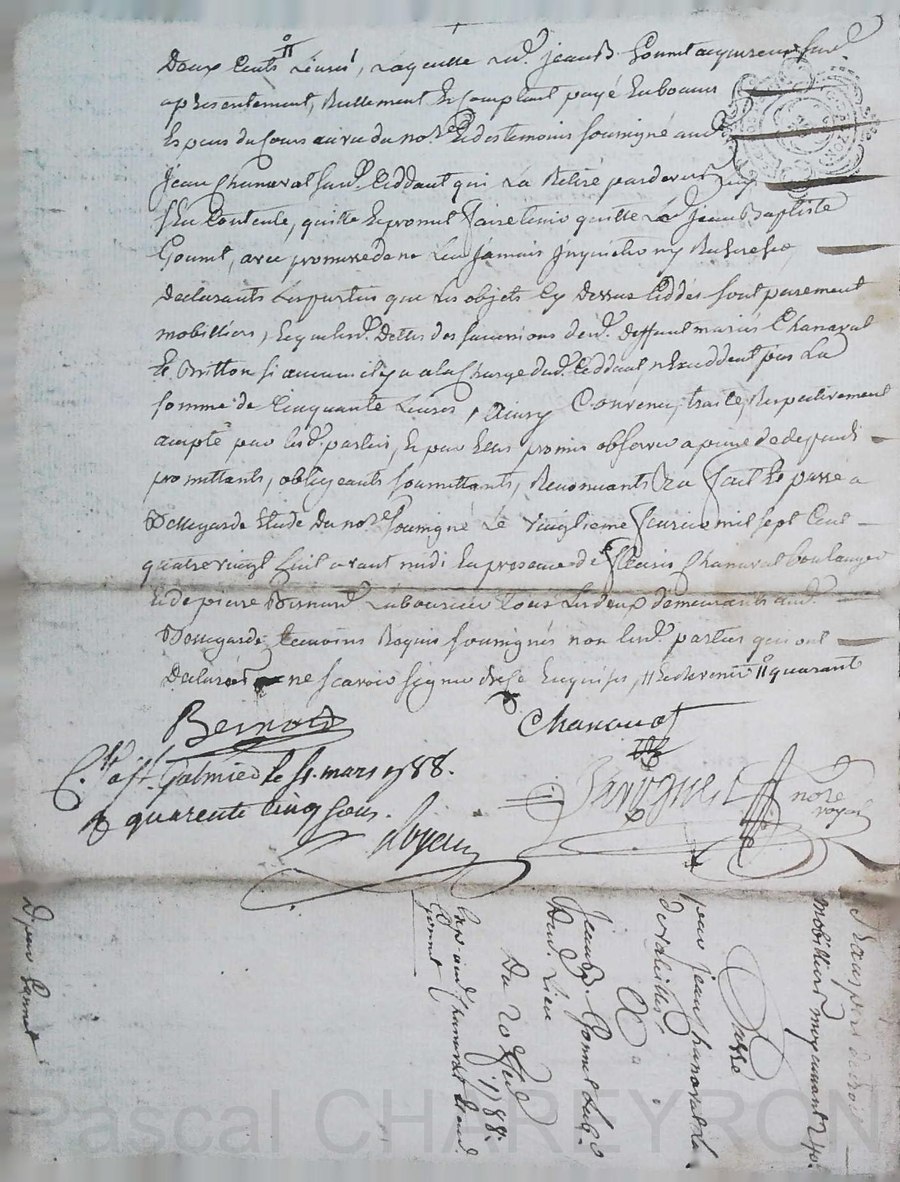 Deux Cents #° Livres, laquelle lad. jean B. Gonnet acquereur susd.
a presentement, Reellement et comptant payé en bonnes
Especes du Cours au vu du nore. et des temoins soussigné aud.
jean Chanavat susd. Ceddant qui la Retiré pardevers luy
S'En Contente, quitte et promet faire tenir quitte led. jean Baptiste
Gonnet, avec promesse de ne l'en jamais Inquietter ny Rechercher
Declarants les parties que les objets Cy Dessus Ceddés sont purement
mobilliers, et que lesd. Dettes des successions desd. deffunt mariés Chanavat
et si aucun il y a a la Charge dud. Ceddant n'Exceddent pas la
somme de Cinquante Livres, Ainsy Convenu, traité, Respectivement
accepté par lesd. parties, et par Elles promis observer a peine de depends
promettants, obligeants soumettants, Renonçants &a fait et passé a
Bellegarde Etude du nore. soussigné Le vingtieme fevrier mil sept Cent
quatre vingt huit avant midi En presence de Chanavat boulanger
et de pierre Bernard Laboureur tous Les deux demeurants aud.
Bellegarde temoins Requis soussignés non lesd. parties qui ont
Declarés ne scavoir signer de ce Enquises, #° quarant
Bernard
Chanavat
C.lé a St. Galmier le 4. mars 1788.
R quarente Cinq sous.
nore
royal
moyennant 240
Passé
par jean Chanavat
A
jean B. Gonnet
dud. Lieu
Du 20 fev. 1788.
Gonnet